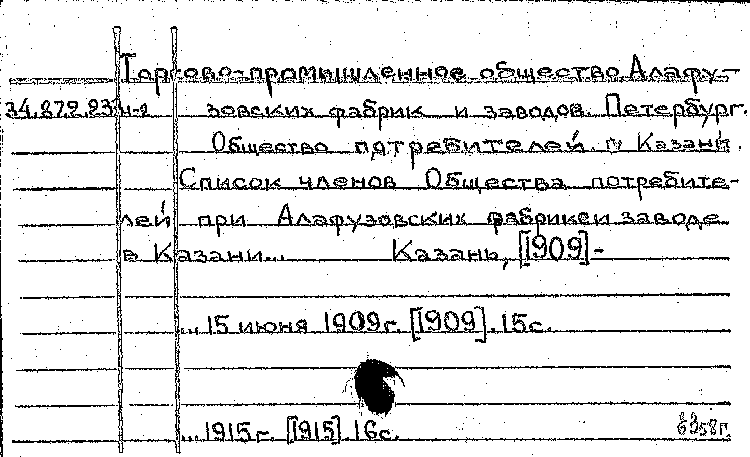 Торгово-промышленное общество Алафу-
34.872.23 н-2 зовских фабрик и заводов. Петербург.
Общество потребителей. Казань.
Список членов Общества потребите-
лей при Алафузовских фабрике и заводе
в Казани... Казань, [1909]-
...15 июня 1909г. [1909]. 15с.
...1915г. [1915]. 16с.